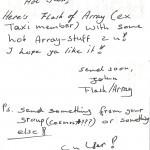 Here's Flash of Array (ex
Taxi member) with some
hot Array-stuff 2 u!
I hope ya like it!
Send soon,
Flash/Array
Ps. Send something from your
group (cosmos???) or something
else!
C u l8er!